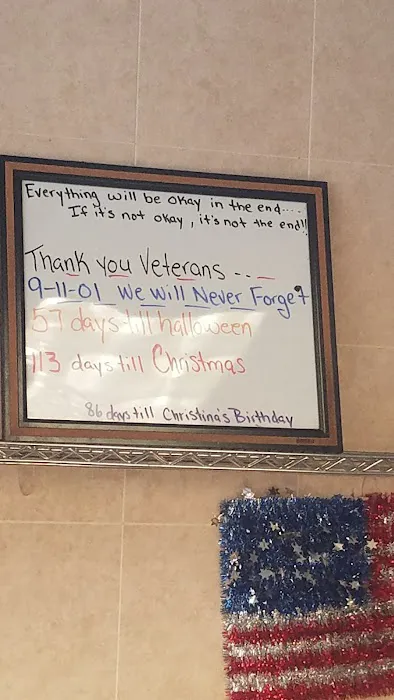 Everything will be okay in the end....
If it's not okay, it's not the end!!
Thank you Veterans ...
9-11-01 We Will Never Forget
57 days till halloween
113 days till Christmas
86 days till Christina's Birthday